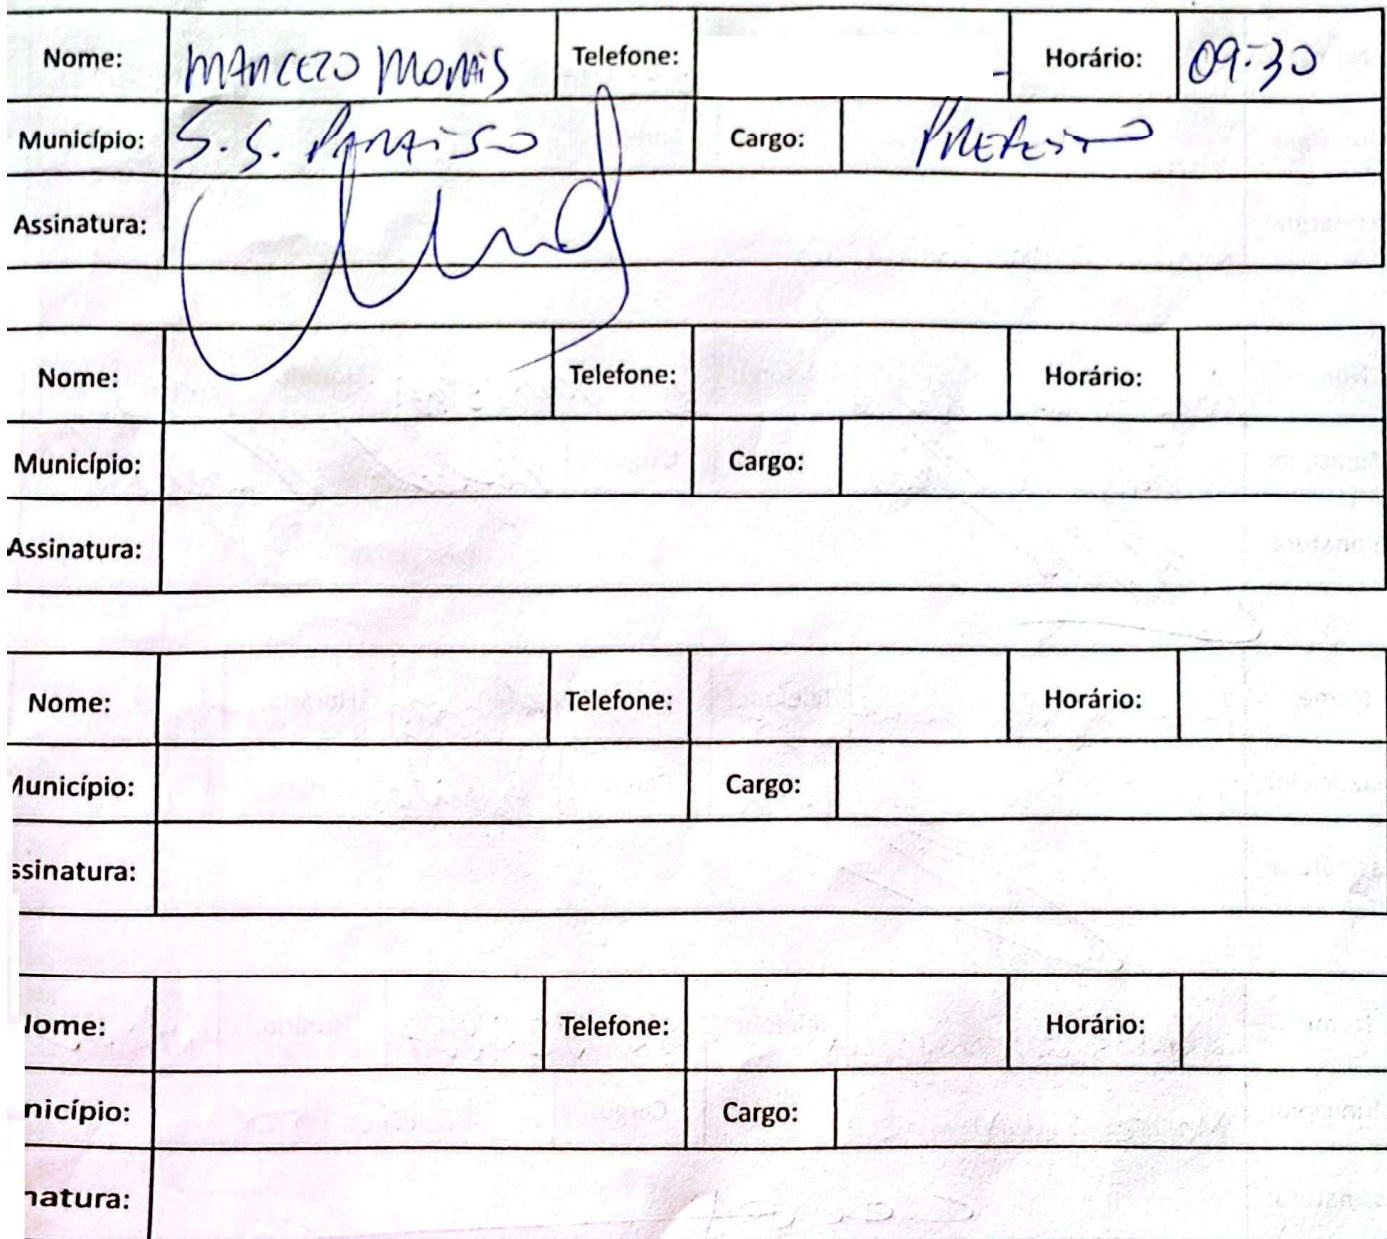 Nome: MARCELO MORAIS Telefone: Horário: 09:30
Município: S.S. PARAISO Cargo: PREFEITO
Assinatura:
Nome: Telefone: Horário:
Município: Cargo:
Assinatura:
Nome: Telefone: Horário:
Município: Cargo:
ssinatura:
Nome: Telefone: Horário:
nicípio: Cargo:
natura: